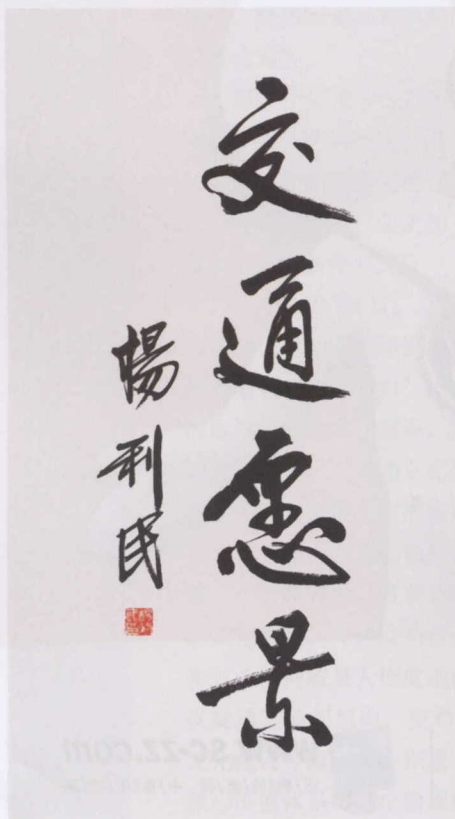 交通愿景
楊利民